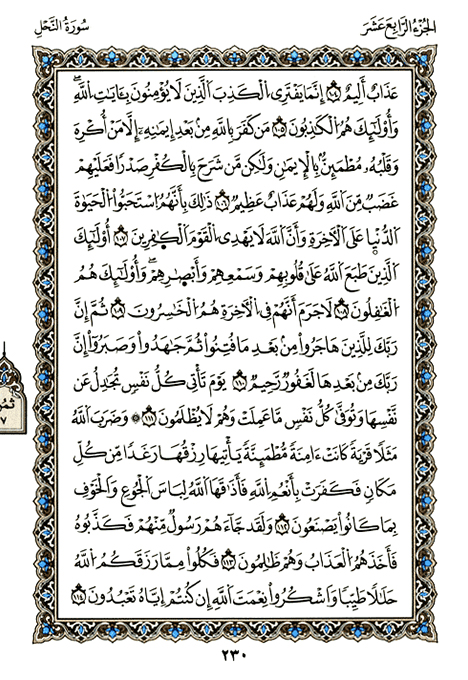 الجزء الرابع عشر
سورة النحل
عَذَابٌ أَلِيمٌ ١٠٤ إِنَّمَا يَفْتَرِى الْكَذِبَ الَّذِينَ لَا يُؤْمِنُونَ بِـَٔايَـٰتِ اللَّهِ
وَأُو۟لَـٰٓئِكَ هُمُ الْكَـٰذِبُونَ ١٠٥ مَن كَفَرَ بِاللَّهِ مِنۢ بَعْدِ إِيمَـٰنِهِۦٓ إِلَّا مَنْ أُكْرِهَ
وَقَلْبُهُۥ مُطْمَئِنٌّۢ بِالْإِيمَـٰنِ وَلَـٰكِن مَّن شَرَحَ بِالْكُفْرِ صَدْرًا فَعَلَيْهِمْ
غَضَبٌ مِّنَ اللَّهِ وَلَهُمْ عَذَابٌ عَظِيمٌ ١٠٦ ذَٰلِكَ بِأَنَّهُمُ اسْتَحَبُّوا۟ الْحَيَوٰةَ
الدُّنْيَا عَلَى الْـَٔاخِرَةِ وَأَنَّ اللَّهَ لَا يَهْدِى الْقَوْمَ الْكَـٰفِرِينَ ١٠٧ أُو۟لَـٰٓئِكَ
الَّذِينَ طَبَعَ اللَّهُ عَلَىٰ قُلُوبِهِمْ وَسَمْعِهِمْ وَأَبْصَـٰرِهِمْ وَأُو۟لَـٰٓئِكَ هُمُ
الْغَـٰفِلُونَ ١٠٨ لَا جَرَمَ أَنَّهُمْ فِى الْـَٔاخِرَةِ هُمُ الْخَـٰسِرُونَ ١٠٩ ثُمَّ إِنَّ
رَبَّكَ لِلَّذِينَ هَاجَرُوا۟ مِنۢ بَعْدِ مَا فُتِنُوا۟ ثُمَّ جَـٰهَدُوا۟ وَصَبَرُوٓا۟ إِنَّ
رَبَّكَ مِنۢ بَعْدِهَا لَغَفُورٌ رَّحِيمٌ ١١٠ يَوْمَ تَأْتِى كُلُّ نَفْسٍ تُجَـٰدِلُ عَن
نَّفْسِهَا وَتُوَفَّىٰ كُلُّ نَفْسٍ مَّا عَمِلَتْ وَهُمْ لَا يُظْلَمُونَ ١١١ وَضَرَبَ اللَّهُ
مَثَلًا قَرْيَةً كَانَتْ ءَامِنَةً مُّطْمَئِنَّةً يَأْتِيهَا رِزْقُهَا رَغَدًا مِّن كُلِّ
مَكَانٍ فَكَفَرَتْ بِأَنْعُمِ اللَّهِ فَأَذَٰقَهَا اللَّهُ لِبَاسَ الْجُوعِ وَالْخَوْفِ
بِمَا كَانُوا۟ يَصْنَعُونَ ١١٢ وَلَقَدْ جَآءَهُمْ رَسُولٌ مِّنْهُمْ فَكَذَّبُوهُ
فَأَخَذَهُمُ الْعَذَابُ وَهُمْ ظَـٰلِمُونَ ١١٣ فَكُلُوا۟ مِمَّا رَزَقَكُمُ اللَّهُ
حَلَـٰلًا طَيِّبًا وَاشْكُرُوا۟ نِعْمَتَ اللَّهِ إِن كُنتُمْ إِيَّاهُ تَعْبُدُونَ ١١٤
٢٣٠